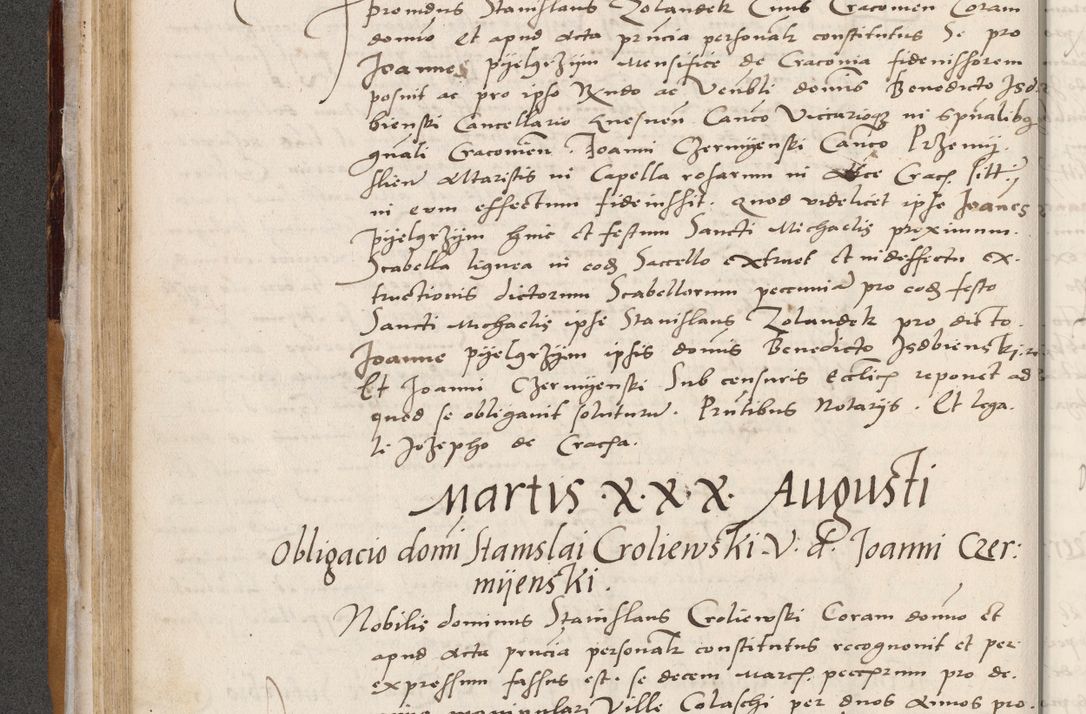 prouidus Stanislaus Zolandek Ciuis Cracouien Coram
domno et apud acta pncia personalr constitutus Se pro
Joanne pyelgrzym Mensifice de Cracouia fideiussorem
posuit ac pro ipso Rndo ac Venbli dominis Benedicto Jsd
bienski Cancellario Gnesnen Canco Vicarioq in spualibq
gnali Cracouien . Joanni Czermyenski Canco Przemy.
slien Altaristis in Capella rosarum in Arce Crac sitt
in eum effectum fideiussit . quod videlicet ipse Joanes
pyelgrzym hinc et festum Sancti Michaelis proximum .
Scabella lignea in eod Saccello extruet et in defectu ex-
tructionis dictorum Scabellorum pecunia pro eod festo
Sancti Michaelis ipse Stanislaus Zolandek pro dicto
Joanne pyelgrzym ipsis domis Benedicto Jsdbienski
Et Joanni Czermyenski Sub censuris ecclic reponet ad
quod se obligauit soluturu . Pntibus Notarijs . Et lega.
te Jozepho de Cracia .
Martis .X.X.X. Augusti
Obligacio domi Stanislai Croliewski .V. d. Joanni Czer:
myenski .
Nobilis dominus Stanislaus Croliewski Coram domno et
apud acta pncia personalr constitutus recognouit et per
expressum fassus est . se decem Marc. peccrum pro de.
manipulari Ville Colaschi per duos annos pro.